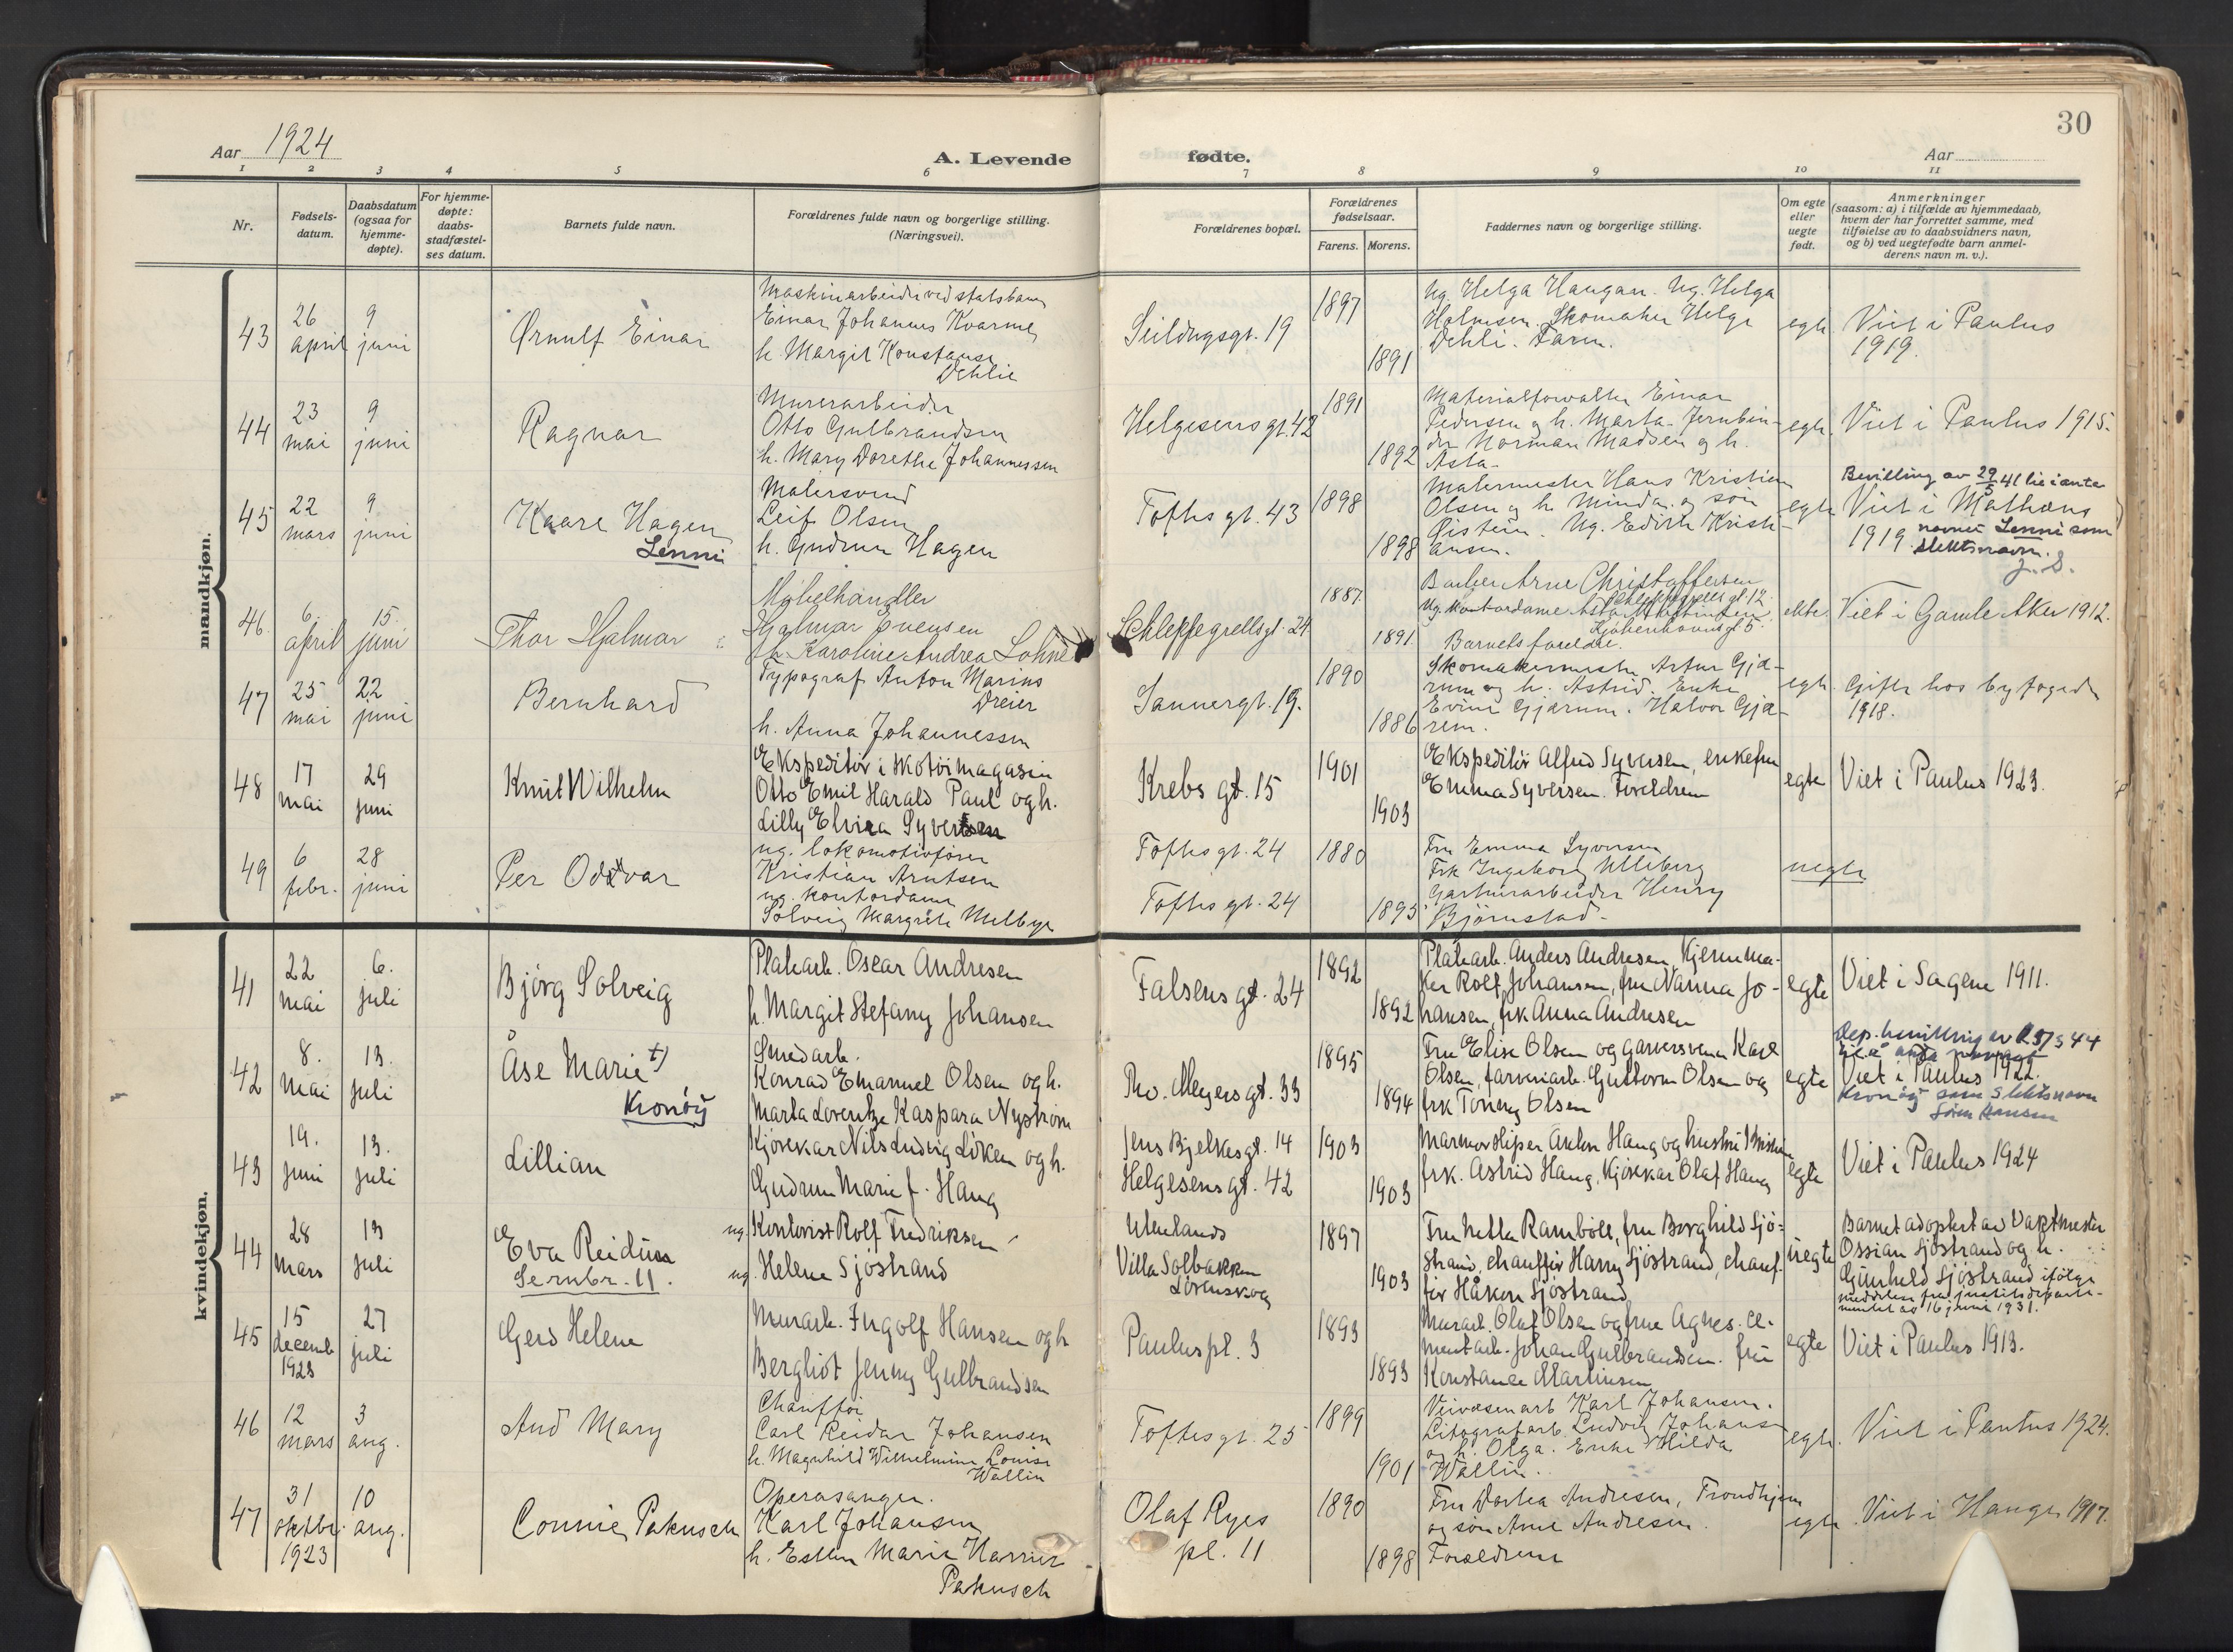 30
Aar 1924
A. Levende fødte.
Aar
1 2 3 4 5 6 7 8 9 10 11
Nr.
Fødsels-
datum.
Daabsdatum
(ogsaa for
hjemme-
døpte).
For hjemme-
døpte:
daabs-
stadfæstel-
ses datum.
Barnets fulde navn.
Forældrenes fulde navn og borgerlige stilling.
(Næringsvei).
Forældrenes bopæl.
Forældrenes
fødselsaar.
Farens. Morens.
Faddernes navn og borgerlige stilling.
Om egte
eller
uegte
født.
Anmerkninger
(saasom: a) i tilfælde av hjemmedaab,
hvem der har forrettet samme, med
tilføielse av to daabsvidners navn,
og b) ved uegtefødte barn anmel-
derens navn m. v.).
mandkjøn.
43
26
april
9
juni
Ørnulf Einar
Maskinarbeider ved statsbanen
Einar Johannes Kvarme
h. Margit Konstanse
Dehlie
Seildugsgt. 19
1897
1891
Ug. Helga Haugan. Ug. Helga
Holmsen. Skomaker Helge
Dehli. Faren.
egte
Viet i Paulus
1919.
44
23
mai
9
juni
Ragnar
Murerarbeider
Otto Gulbrandsen
h. Mary Dorethe Johannessen
Helgesens gt. 42
1891
1892
Materialforvalter Einar
Pedersen og h. Marta. Jernbin-
der Norman Madsen og h.
Asta.
egte
Viet i Paulus 1915.
45
22
mars
9
juni
Kaare Hagen
Lenni
Malersvend
Leif Olsen
h. Gudrun Hagen
Toftes gt. 43
1898
1898
Malermester Hans Kristian
Olsen og h. Minda og søn
Øistein. Ug. Edith Kristi-
ansen.
egte
Bevilling av 29/5 41 til å anta
Viet i Mathæus
1919.
navnet Lenni som
slektsnavn.
46
6.
april
15.
juni
Thor Hjalmar
Møbelhandler
Hjalmar Evensen
h. Karoline Andrea Lohne
Schleppegrellsgt. 24
1887.
1891.
Barber Arne Christoffersen
Schleppegrells gt. 12.
Ug. Kontordame Asta
Kjøbenhavnsgt 5.
Barnets foreldre.
ekte.
Viet i Gamle Aker 1912.
47
25
mai
22
juni
Bernhard
Typograf Anton Marius
Dreier
h. Anna Johannessen
Sannergt. 19.
1890
1886
Skomakermester Artur Gjæ-
rum og h. Astrid. Enke
Evine Gjærum. Halvor Gjæ-
rem.
egte
Gifte hos byfogden
1918.
48
17
mai
29
juni
Knut Wilhelm
Ekspeditør i skotøimagasin
Otto Emil Harald Paul og h.
Lilly Elvira Syversen
Krebs gt. 15
1901
1903
Ekspeditör Alfred Syversen, enkefru
Emma Syversen. Foreldrene
egte
Viet i Paulus 1923.
49
6
febr.
28
juni
Per Oddvar
ug. lokomotivfører
Kristian Arntsen
ug. kontordame
Solveig Margrete Melbye
Toftes gt. 24
Toftes gt. 24
1880
1895
Fru Emma Syversen
Frk Ingeborg Ulleberg
Gartnerarbeider Henry
Bjørnstad.
uegte
kvindekjøn.
41
22
mai
6.
juli
Bjørg Solveig
Platearb. Oscar Andresen
h. Margit Stefany Johansen
Falsens gt. 24
1892
1892
Platearb. Anders Andresen, Kjernema-
ker Rolf Johansen, fru Nanna Jo-
hansen, frk Anna Andresen
egte
Viet i Sagene 1911.
42
8.
Mai
13.
juli
Åse Marie †)
Kronöy
Smedarb.
Konrad Emanuel Olsen og h.
Marta Lorentze Kaspara Nystrøm
Th. Meyers gt. 33
1895
1894
Fru Elise Olsen og garversvenn Karl
Olsen, farveriarb. Guttorm Olsen og
frk Tonny Olsen
egte
Viet i Paulus 1922.
Kronöy som slektsnavn
43
19.
juni
13.
juli
Lillian
Kjørekar Nils Ludvig Løken og h.
Gudrun Marie f. Haug
Jens Bjelkes gt. 14
Helgesens gt. 42
1903
1903
Marmorsliper Anton Haug og hustru Kristine
frk. Astrid Haug, Kjørekar Olaf Haug
egte
Viet i Paulus 1924
44
28
mars
13
juli
Eva Reidun
Se nmbr. 11.
ug. Kontorist Rolf Fredriksen
ug. Helene Sjöstrand
Utenlands
Villa Solbakken
Lørenskog
1897
1903
Fru Netta Ramböll, fru Borghild Sjö-
strand, chauffør Harry Sjöstrand, chauf-
før Håkon Sjöstrand
uegte
Barnet adoptert av Vaktmester
Ossian Sjöstrand og h.
Gunhild Sjöstrand ifölge
meddelelse fra justitsdeparte-
mentet av 16 juni 1931.
45
15
decemb
1923
27
juli
Gerd Helene
Murarb. Ingolf Hansen og h
Bergliot Jenny Gulbrandsen
Paulus pl. 3
1893
1893
Murarb. Olaf Olsen og frue Agnes. Ce-
mentarb. Johan Gulbrandsen. fru
Konstance Martinsen
egte
Viet i Paulus 1913.
46
12
mars
3
aug.
Aud Mary
Chauffør
Carl Reidar Johansen
h. Magnhild Wilhelmine Louise
Wallin
Toftes gt. 25
1899
1901
Veivæsenarb Karl Johansen.
Litografarb. Ludvig Johansen
og h. Olga. Enke Hilda
Wallin.
egte.
Viet i Paulus 1924.
47
31
oktbr.
1923
10
aug.
Connie Pakusch
Operasanger.
Karl Johansen
h. Esther Marie Harriet
Pakusch
Olaf Ryes
pl. 11
1890
1898
Fru Dorthea Andresen, Trondhjem
og søn Arne Andresen.
Forældrene
egte
Viet i Hauge 1917.